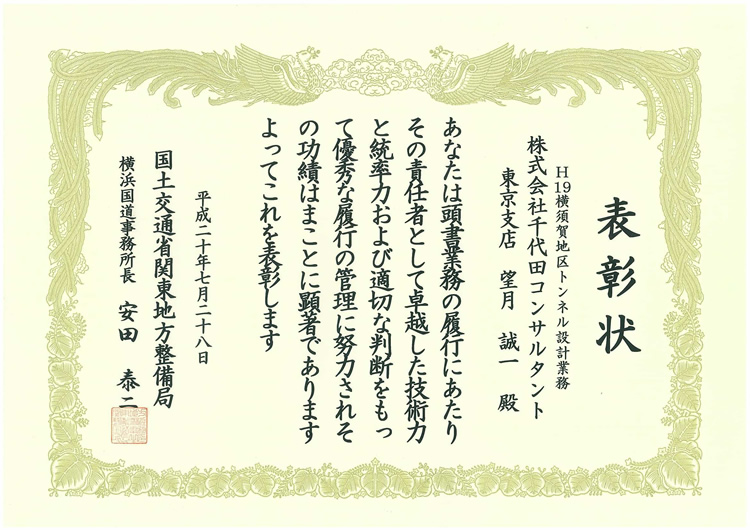 表彰状
H19横須賀地区トンネル設計業務
株式会社千代田コンサルタント
東京支店 望月 誠一 殿
あなたは頭書業務の履行にあたり
その責任者として卓越した技術力
と統率力および適切な判断をもっ
て優秀な履行の管理に努力されそ
の功績はまことに顕著であります
よってこれを表彰します
平成二十年七月二十八日
国土交通省関東地方整備局
横浜国道事務所長 安田 泰二